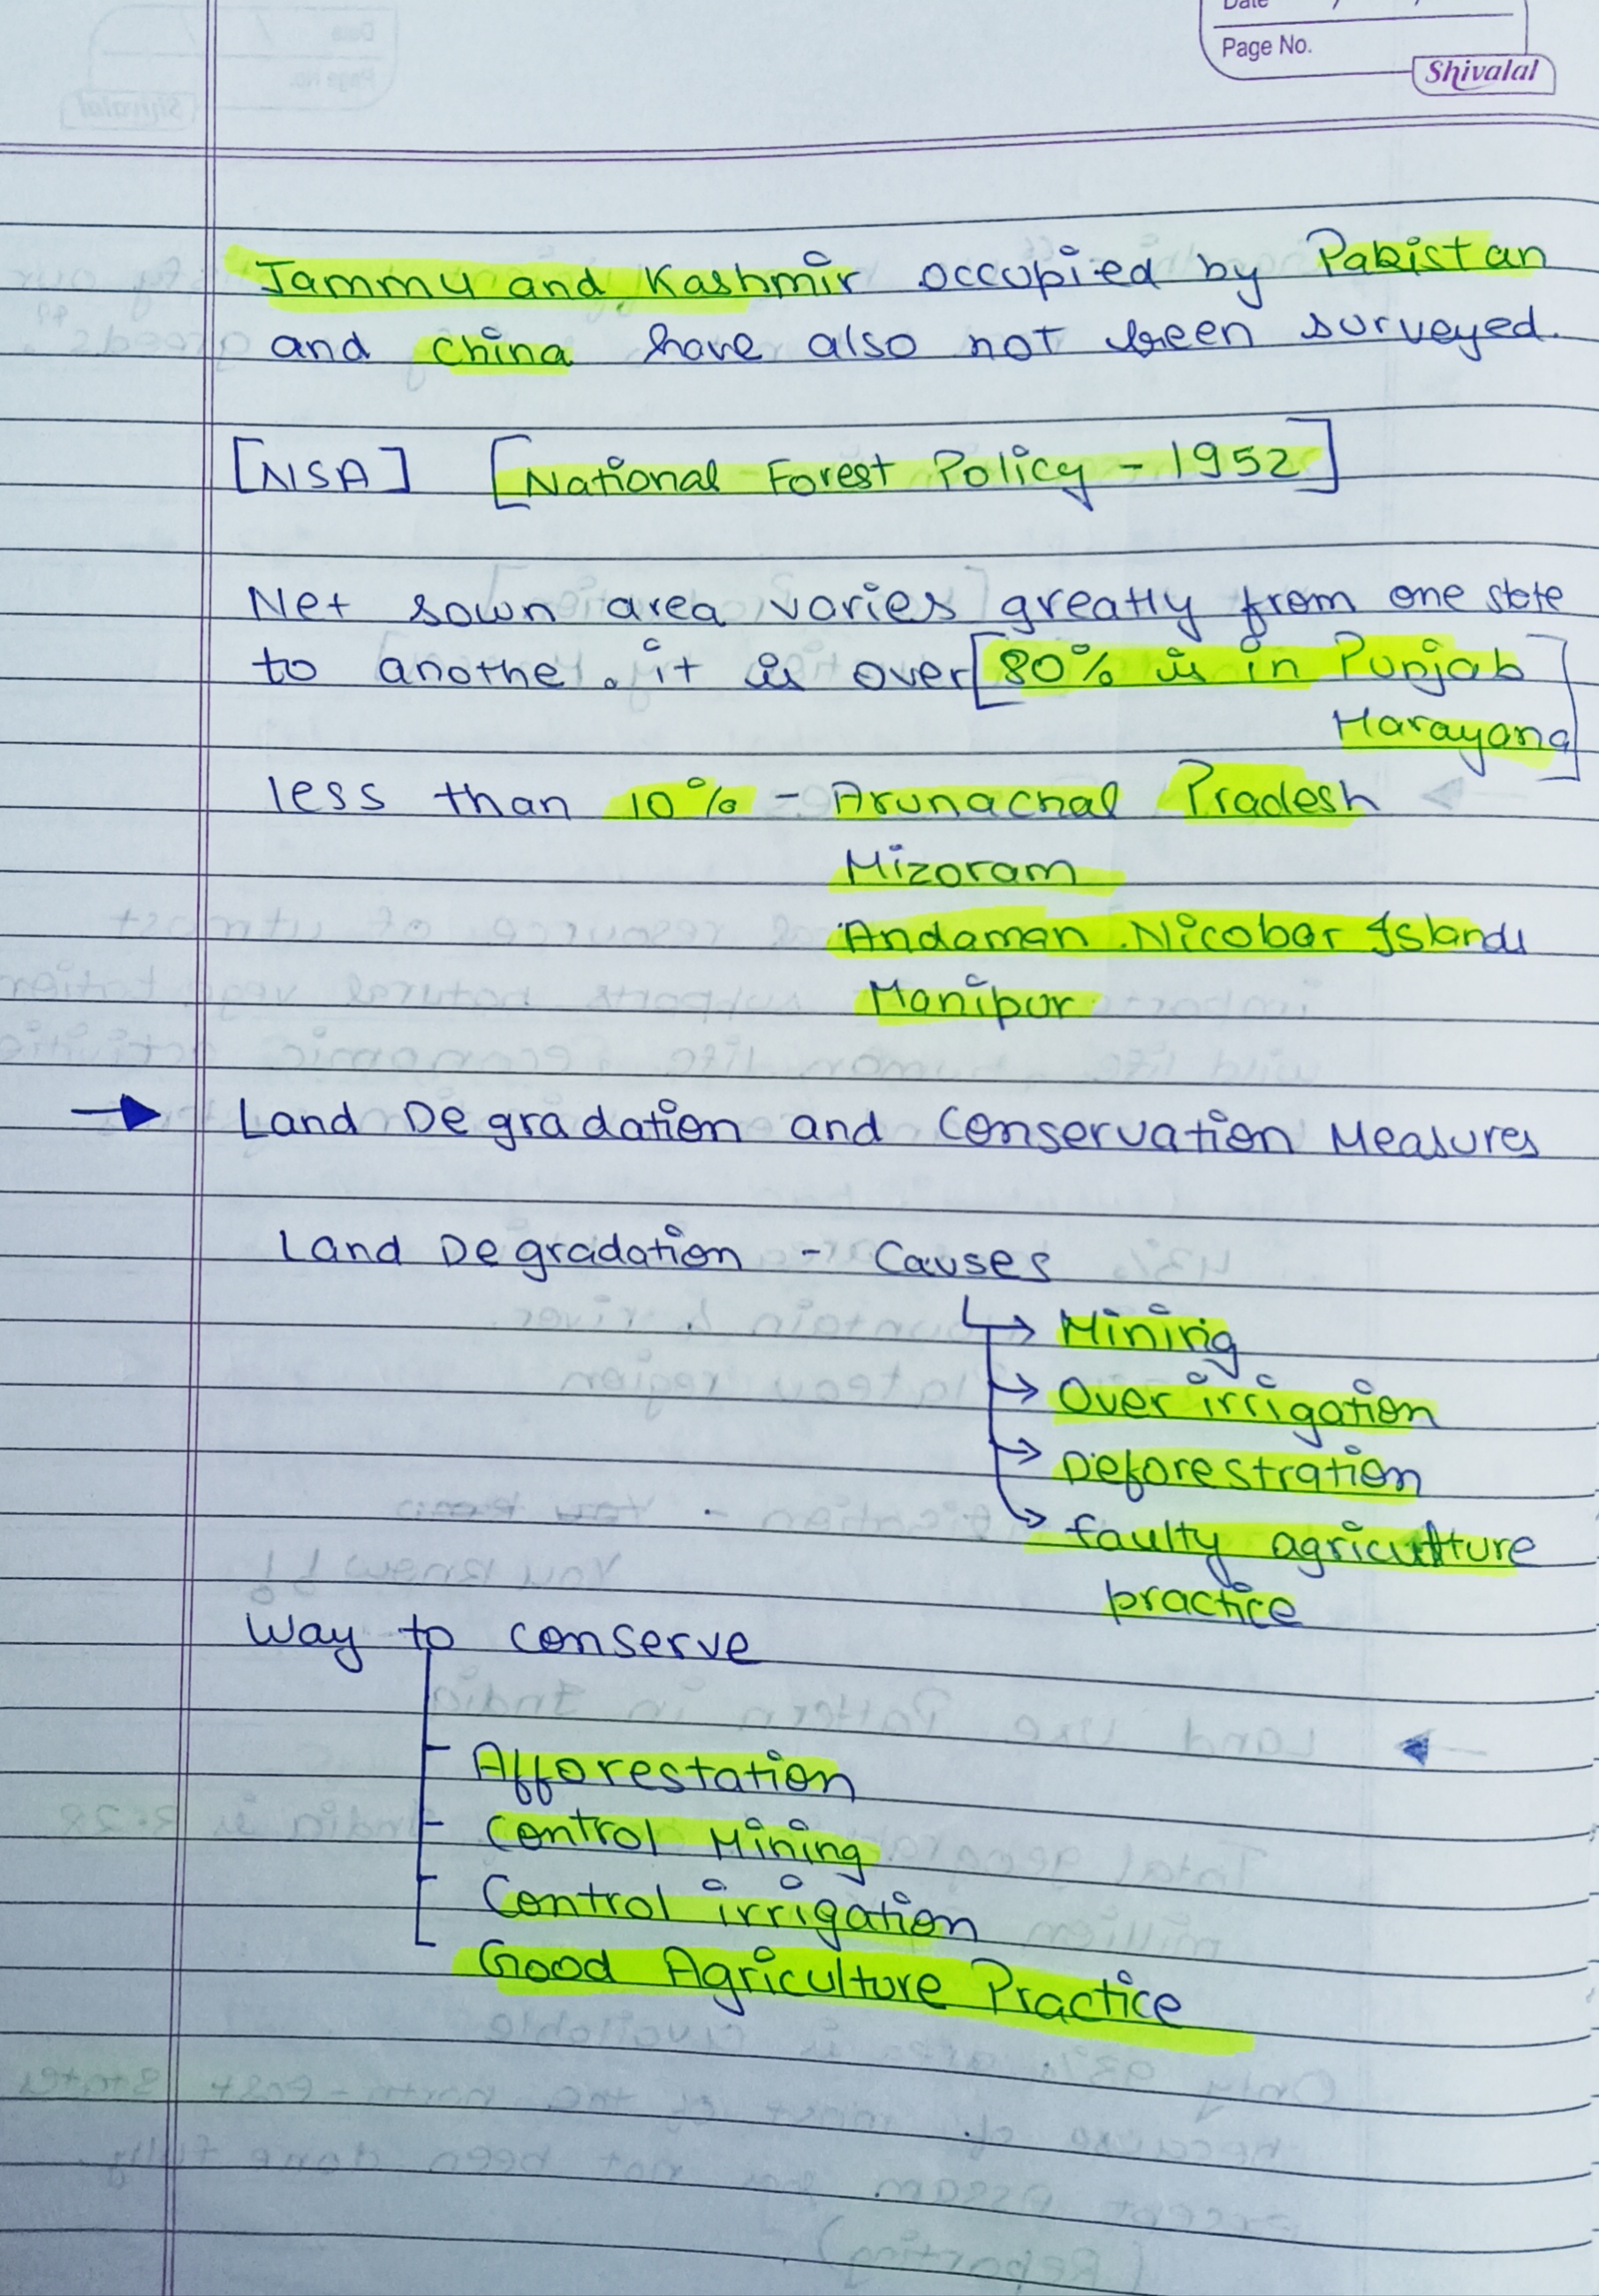 Date / /
Page No.
Shivalal
Jammu and Kashmir occupied by Pakistan
and China have also not been surveyed.
[NSA] [National Forest Policy - 1952]
Net sown area varies greatly from one state
to anothe. it is over [80% is in Punjab
Harayana]
less than 10% - Arunachal Pradesh
Mizoram
Andaman Nicobar Islands
Manipur
→ Land Degradation and Conservation Measures
Land Degradation - Causes
→ Mining
→ Over irrigation
→ Deforestration
→ faulty agriculture
practice
Way to conserve
Afforestation
Control Mining
Control irrigation
Good Agriculture Practice